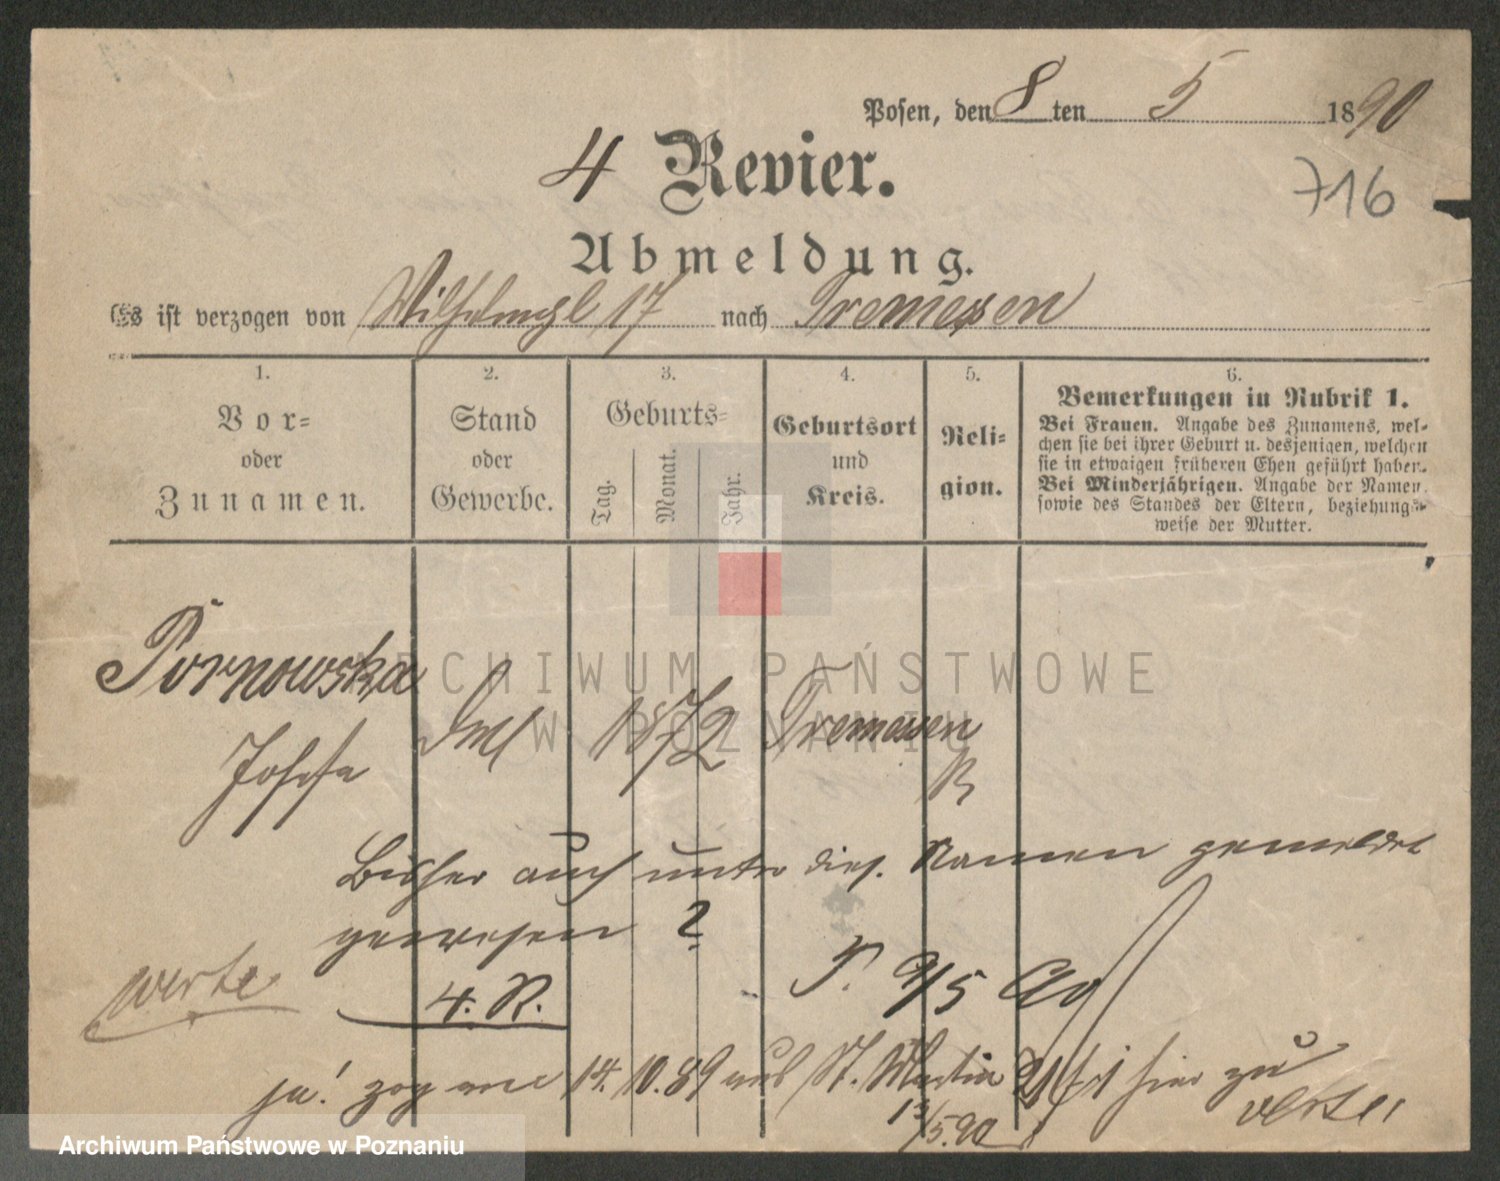 Posen, den 8ten 5 1890
4 Revier.
716
Abmeldung.
Es ist verzogen von Wilhelmspl 17 nach Tremessen
1.
Vor-
oder
Zunamen.
2.
Stand
oder
Gewerbe.
3.
Geburts-
Tag.
Monat.
Jahr.
4.
Geburtsort
und
Kreis.
5.
Reli-
gion.
6.
Bemerkungen in Rubrik 1.
Bei Frauen. Angabe des Zunamens, wel-
chen sie bei ihrer Geburt u. desjenigen, welchen
sie in etwaigen früheren Ehen geführt haben.
Bei Minderjährigen. Angabe der Namen,
sowie des Standes der Eltern, beziehungs-
weise der Mutter.
Pornowska
Josefa
1872
Tremessen
Bisher auch unter dies. Namen gemeldet
gewesen ?
4. R.
P. 9/5 90
ja! zog am 14.10.89 aus St. Martin hier zu
13/5.90
ARCHIWUM PAŃSTWOWE
W POZNANIU
Archiwum Państwowe w Poznaniu